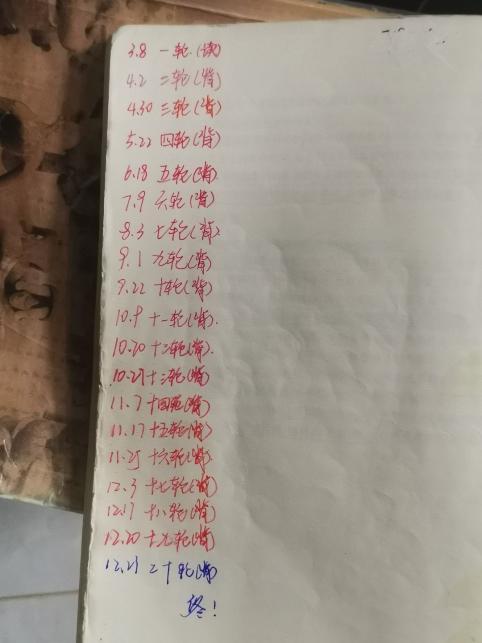 3.8 一轮(读)
4.2 二轮(背)
4.30 三轮(背)
5.22 四轮(背)
6.18 五轮(背)
7.9 六轮(背)
8.3 七轮(背)
9.1 九轮(背)
9.22 十轮(背)
10.9 十一轮(背).
10.20 十二轮(背).
10.29 十三轮(背)
11.7 十四轮(背)
11.17 十五轮(背)
11.25 十六轮(背)
12.3 十七轮(背)
12.17 十八轮(背)
12.20 十九轮(背)
12.21 二十轮(背)
终!